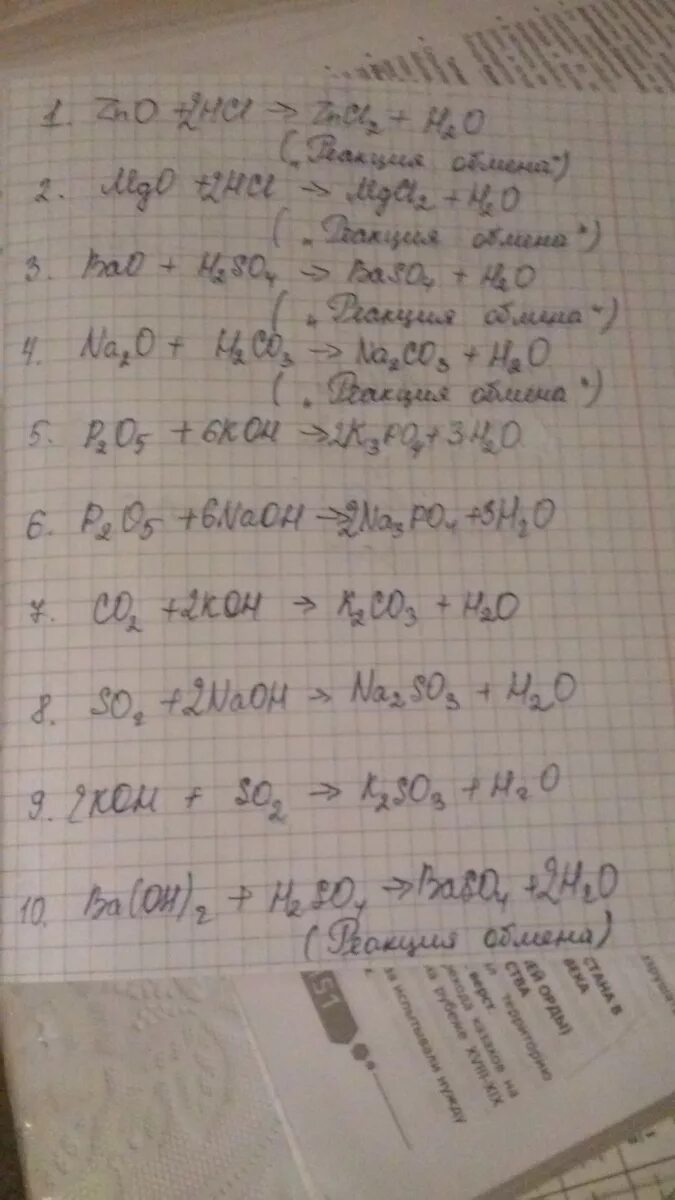 1. ZnO +2HCl → ZnCl₂ + H₂O
(„Реакция обмена")
2. MgO +2HCl → MgCl₂ + H₂O
(„Реакция обмена")
3. BaO + H₂SO₄ → BaSO₄ + H₂O
(„Реакция обмена")
4. Na₂O + H₂CO₃ → Na₂CO₃ + H₂O
(„Реакция обмена")
5. P₂O₅ + 6KOH → 2K₃PO₄ + 3H₂O
6. P₂O₅ + 6NaOH → 2Na₃PO₄ + 3H₂O
7. CO₂ + 2KOH → K₂CO₃ + H₂O
8. SO₂ + 2NaOH → Na₂SO₃ + H₂O
9. 2KOH + SO₂ → K₂SO₃ + H₂O
10. Ba(OH)₂ + H₂SO₄ → BaSO₄ + 2H₂O
(Реакция обмена)
51
СТАНА В
ВЕКА
ЕЙ ОРДЫ)
СТВА
территорию
верст
казахов на
на рубеже XVIII-XIX
за испытывали нужду